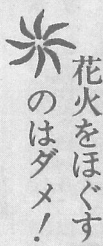 花火をほぐす
のはダメ!